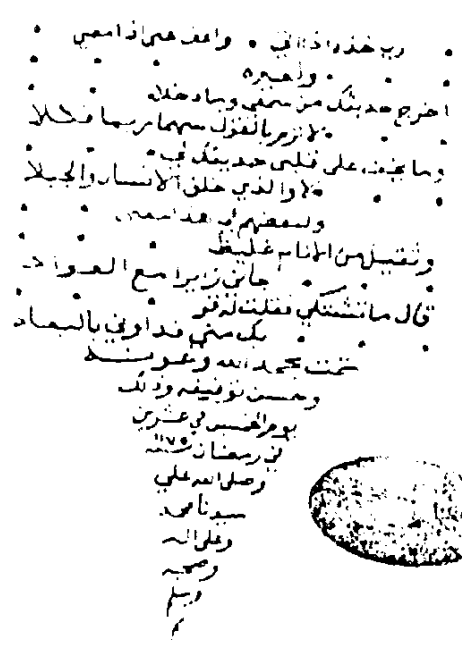 رب خذ داذا اتي واعف عني اذا مضي
واخيره
اخرج حديثك من سمعي وما دخلا
لا ترم بالقول سهما ربما قتلا
وما يخف على قلبي حديثك لي
لا والذي خلق الانسان والجبلا
ولبعضهم
وثقيل من الانام غليظ
جاني زايرا مع العواد
قال ما تشتكي فقلت له قو
بك مني فداوني بالبعاد
تمت بحمد الله وعونه
وحسن توفيقه وذلك
يوم الخميس في عشرين
في رمضان سنة ١١٧٥
وصلى الله علي
سيدنا محمد
وعلى اله
وصحبه
وسلم
م